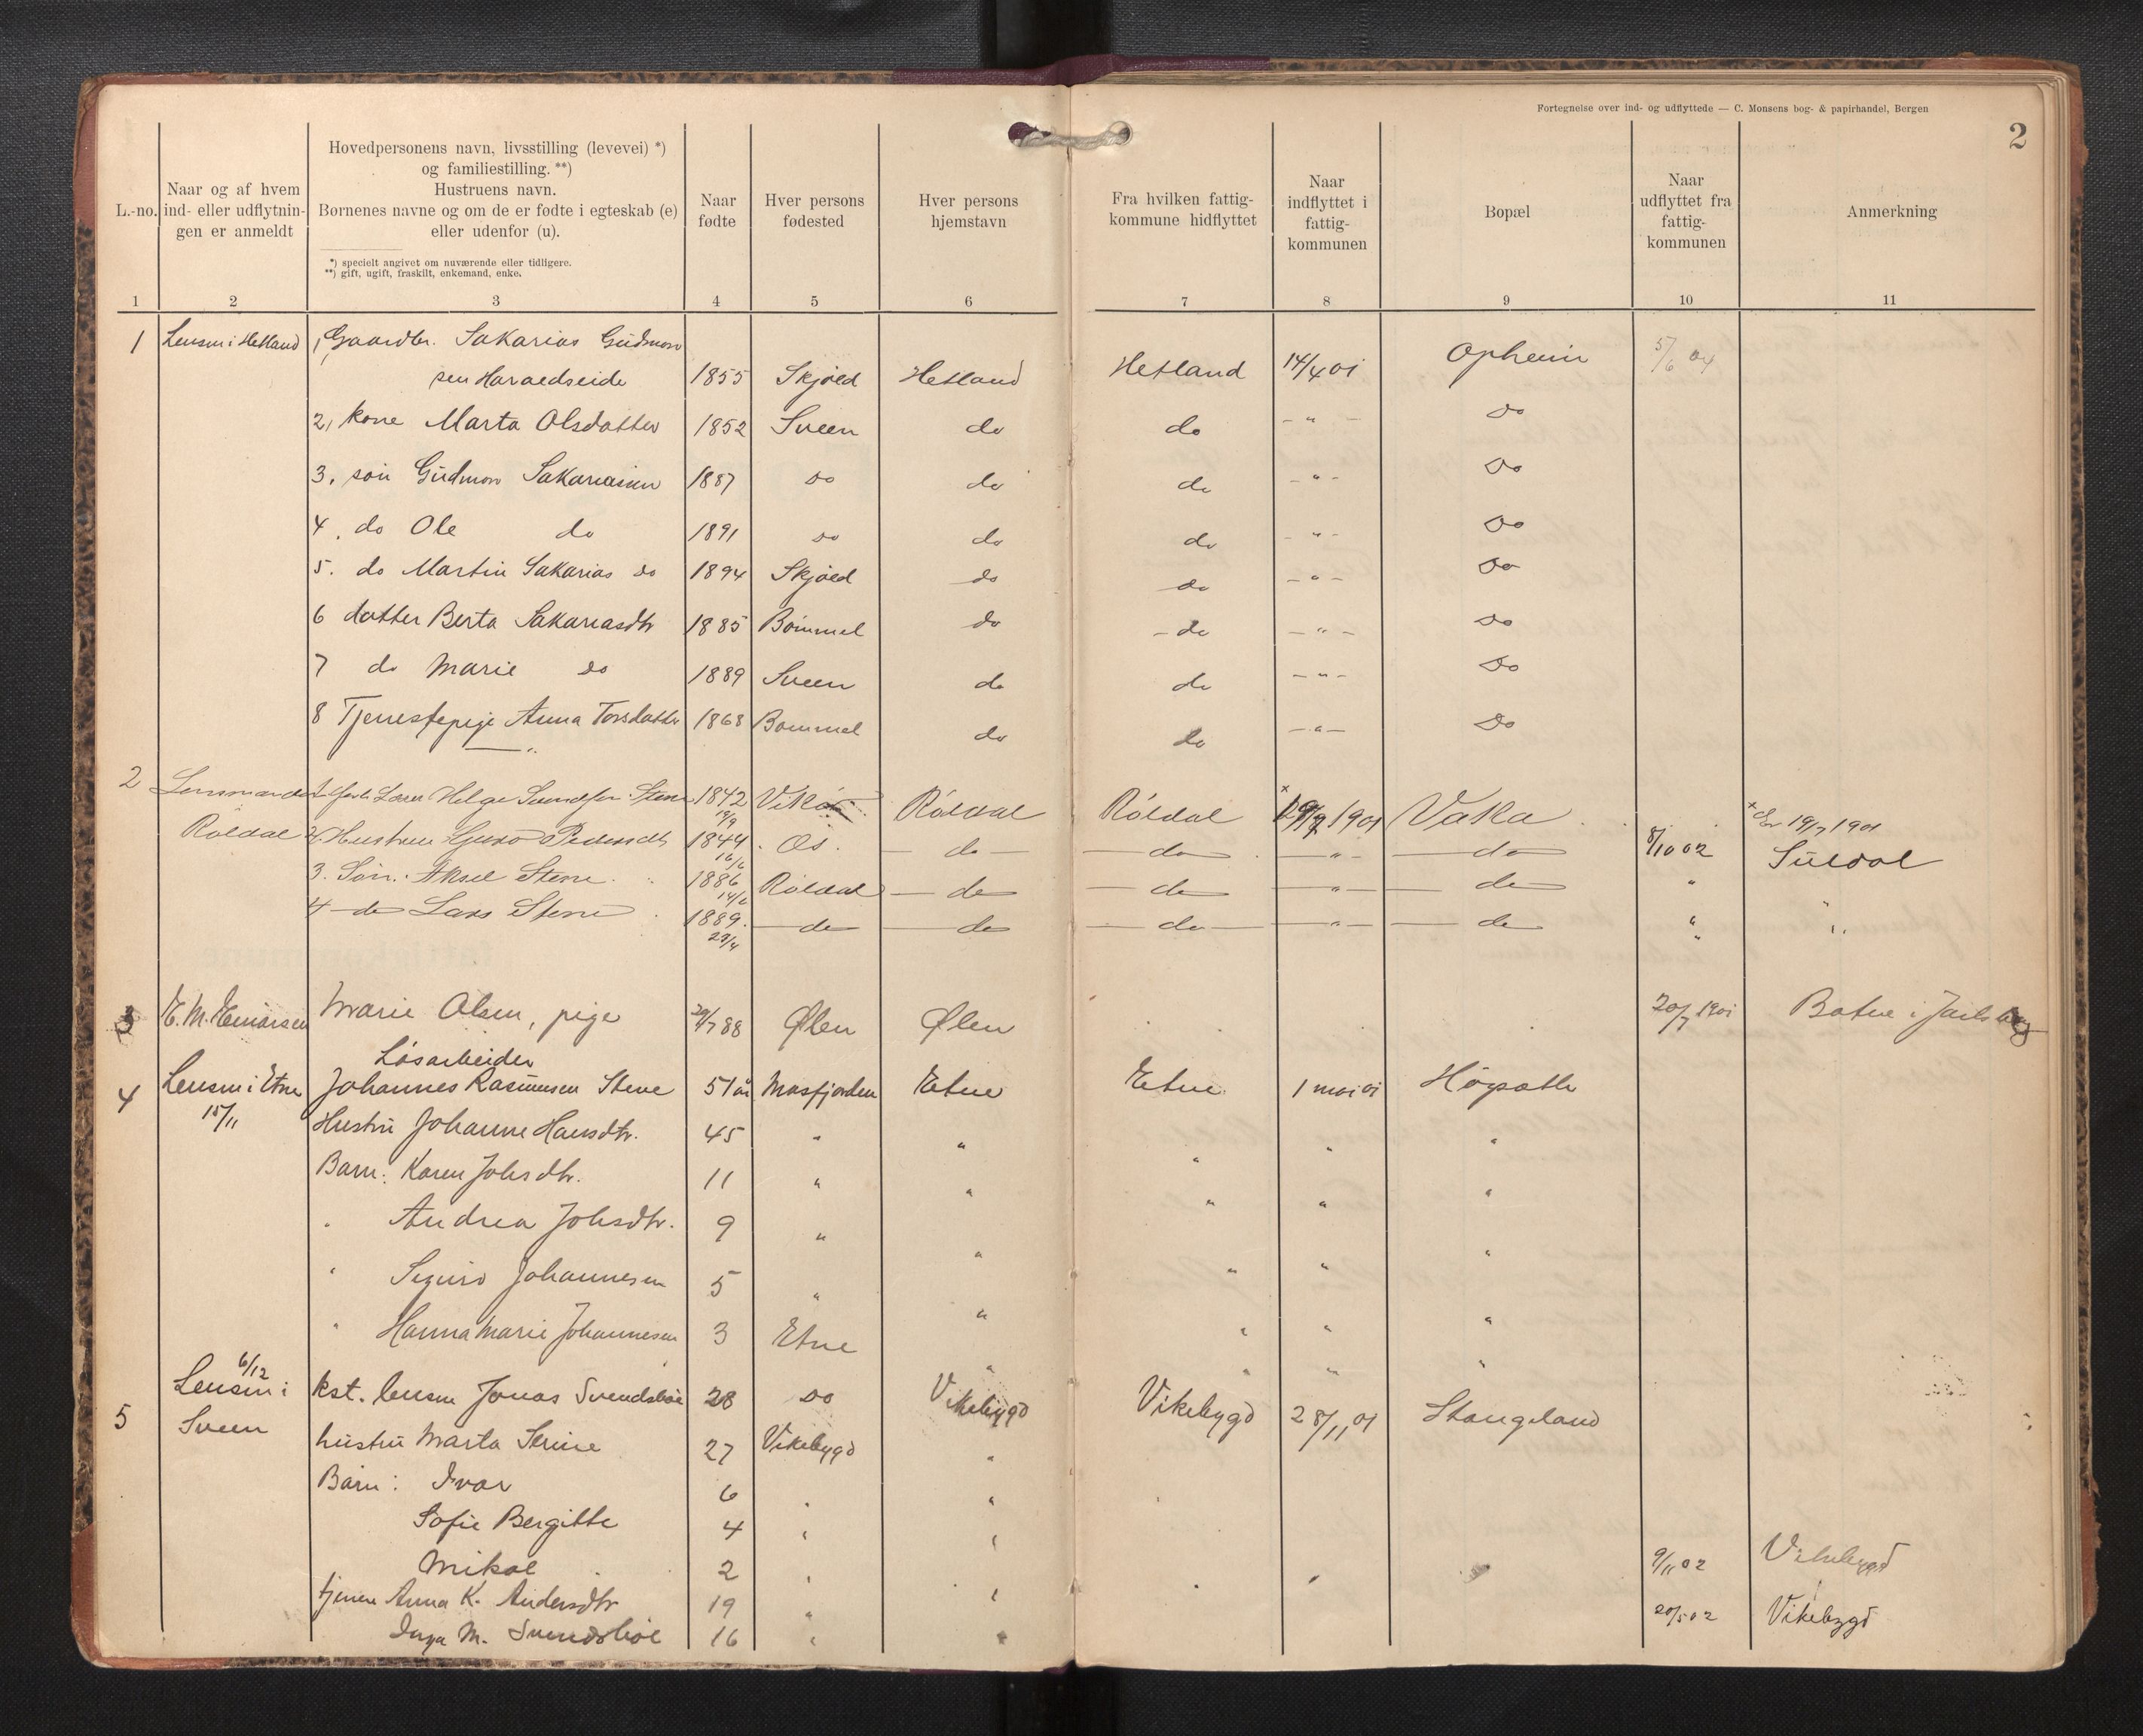 Fortegnelse over ind- og udflyttede — C. Monsens bog- & papirhandel, Bergen
2
L.-no.
Naar og af hvem
ind- eller udflytnin-
gen er anmeldt
Hovedpersonens navn, livsstilling (levevei) *)
og familiestilling. **)
Hustruens navn.
Børnenes navne og om de er fødte i egteskab (e)
eller udenfor (u).
*) specielt angivet om nuværende eller tidligere.
**) gift, ugift, fraskilt, enkemand, enke.
Naar
fødte
Hver persons
fødested
Hver persons
hjemstavn
Fra hvilken fattig-
kommune hidflyttet
Naar
indflyttet i
fattig-
kommunen
Bopæl
Naar
udflyttet fra
fattig-
kommunen
Anmerkning
1 2 3 4 5 6 7 8 9 10 11
1 Lensm i Hetland 1, Gaardbr. Sakarias Gudmun
sen Haraldseide 1855 Skjold Hetland Hetland 14/4 01 Opheim 5/6 04
2, kone Marta Olsdatter 1852 Sveen do do - " - Do
3, søn Gudmun Sakariasen 1887 do do do - " - Do
4, do Ole do 1891 do do do - " - Do
5. do Martin Sakarias do 1894 Skjold do do - " - Do
6 datter Berta Sakariasdtr 1885 Bømmel do - do - " - Do
7 do Marie do 1889 Sveen do do - " - Do
8 Tjenestepige Anna Torsdatter 1868 Bømmel do do - " - Do
2 Lensmanden Helge Svendsen Stene 1842 19/9 Vikør Røldal Røldal 1901 Vaka × 19/7 1901
Røldal 2 Hustru Guro Pedersdtr 1844 16/6 Os. do do " do 8/10 02 Suldal
3. Søn. Aksel Stene. 1886 14/6 Røldal do do " do " "
4 do Lars Stene 1889. 29/4 do do do " do " "
3 E. M. Einarsen Marie Olsen, pige 29/7 88 Ølen Ølen 20/7 1901 Botne i Jarlsberg
Løsarbeider
4 Lensm i Etne Johannes Rasmussen Stene 51 år Masfjorden Etne Etne 1 mai 01
15/11 Hustru Johanne Hansdtr. 45 " " " " "
Barn: Karen Johsdtr. 11 " " " " "
" Andrea Johsdtr. 9 " " " " "
" Sigurd Johannesen 5 " " " " "
" Hanna Marie Johannesen 3 Etne " " " "
6/12
5 Lensm i kst. lensm Jonas Svendsbøe 28 do Vikebygd Vikebygd 28/11 01 Stangeland
Sveen hustru Marta Serine 27 Vikebygd "
Barn: Ivar 6 " "
Sofie Bergitte 4 " "
Mikal 2 " 9/11 02 Vikebygd
tjener Anna K. Andersdtr 19 " "
Inga M. Svendsbøe 16 " " 20/5 02 Vikebygd